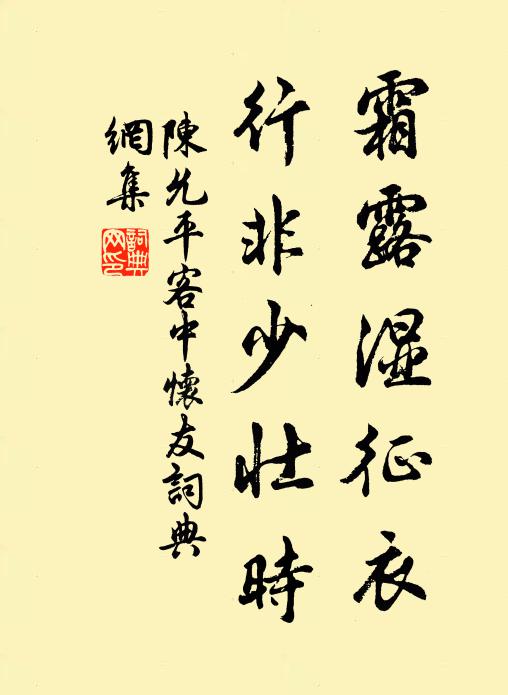 霜露濕征衣
行非少壯時
陳允平客中懷友詞典
網集
詞典網印